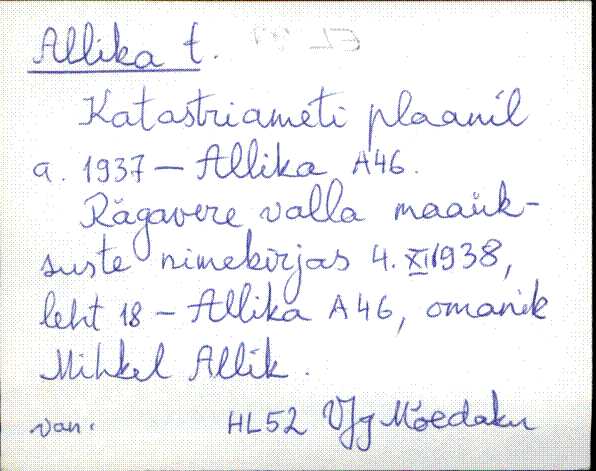 Allika t.
Katastriameti plaanil
a. 1937 – Allika A46.
Rägavere valla maaük-
suste nimekirjas 4. XI 1938,
leht 18 – Allika A46, omanik
Mihkel Allik.
van. HL52 VJg Mõedaku